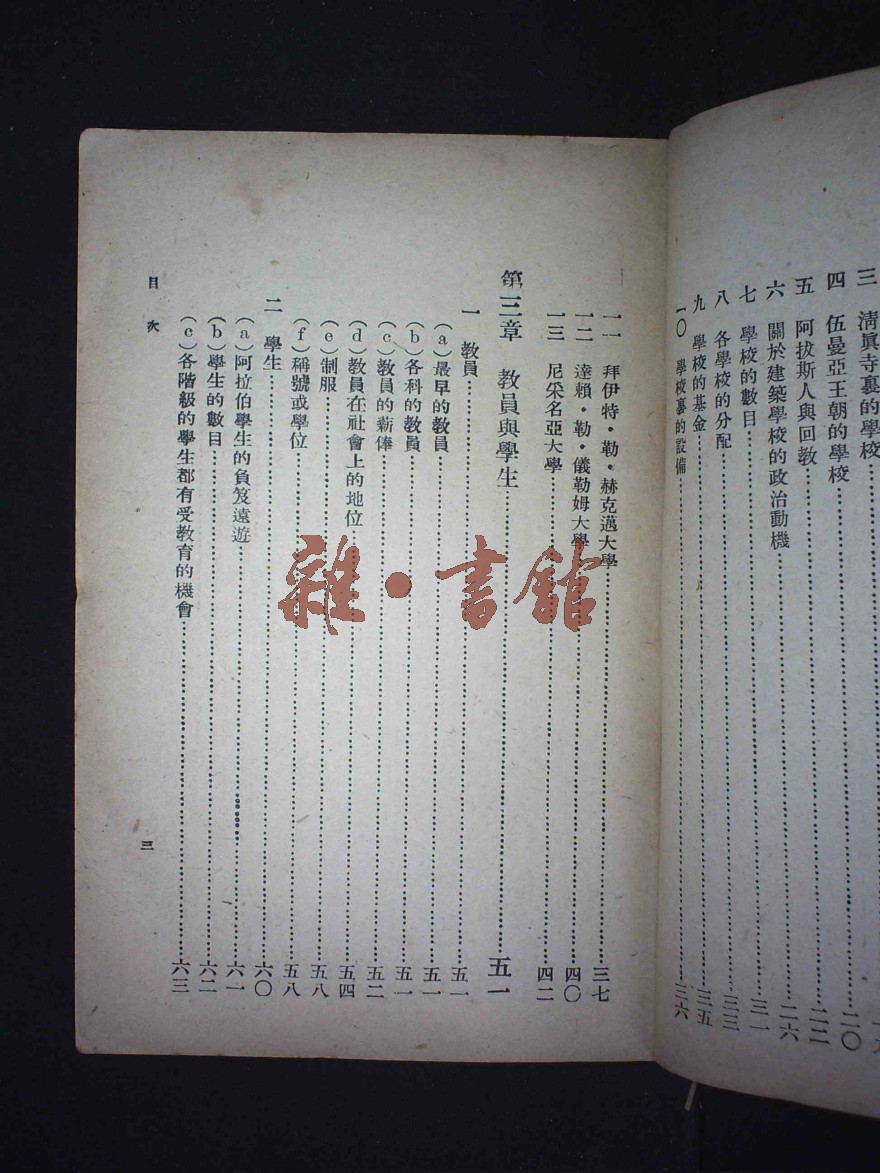 三 清眞寺裏的學校
四 伍曼亞王朝的學校……二〇
五 阿拔斯人與回教……二二
六 關於建築學校的政治動機……二六
七 學校的數目……三一
八 各學校的分配……三三
九 學校的基金……三五
一〇 學校裏的設備……三六
一一 拜伊特・勒・赫克邁大學……三七
一二 達賴・勒・儀勒姆大學……四〇
一三 尼采名亞大學……四二
第三章 教員與學生……五一
一 教員……五一
(a)最早的教員……五一
(b)各科的教員……五一
(c)教員的薪俸……五二
(d)教員在社會上的地位……五四
(e)制服……五八
(f)稱號或學位……五八
二 學生……六〇
(a)阿拉伯學生的負笈遠遊……六一
(b)學生的數目……六二
(c)各階級的學生都有受教育的機會……六三
目次
三
雜・書館